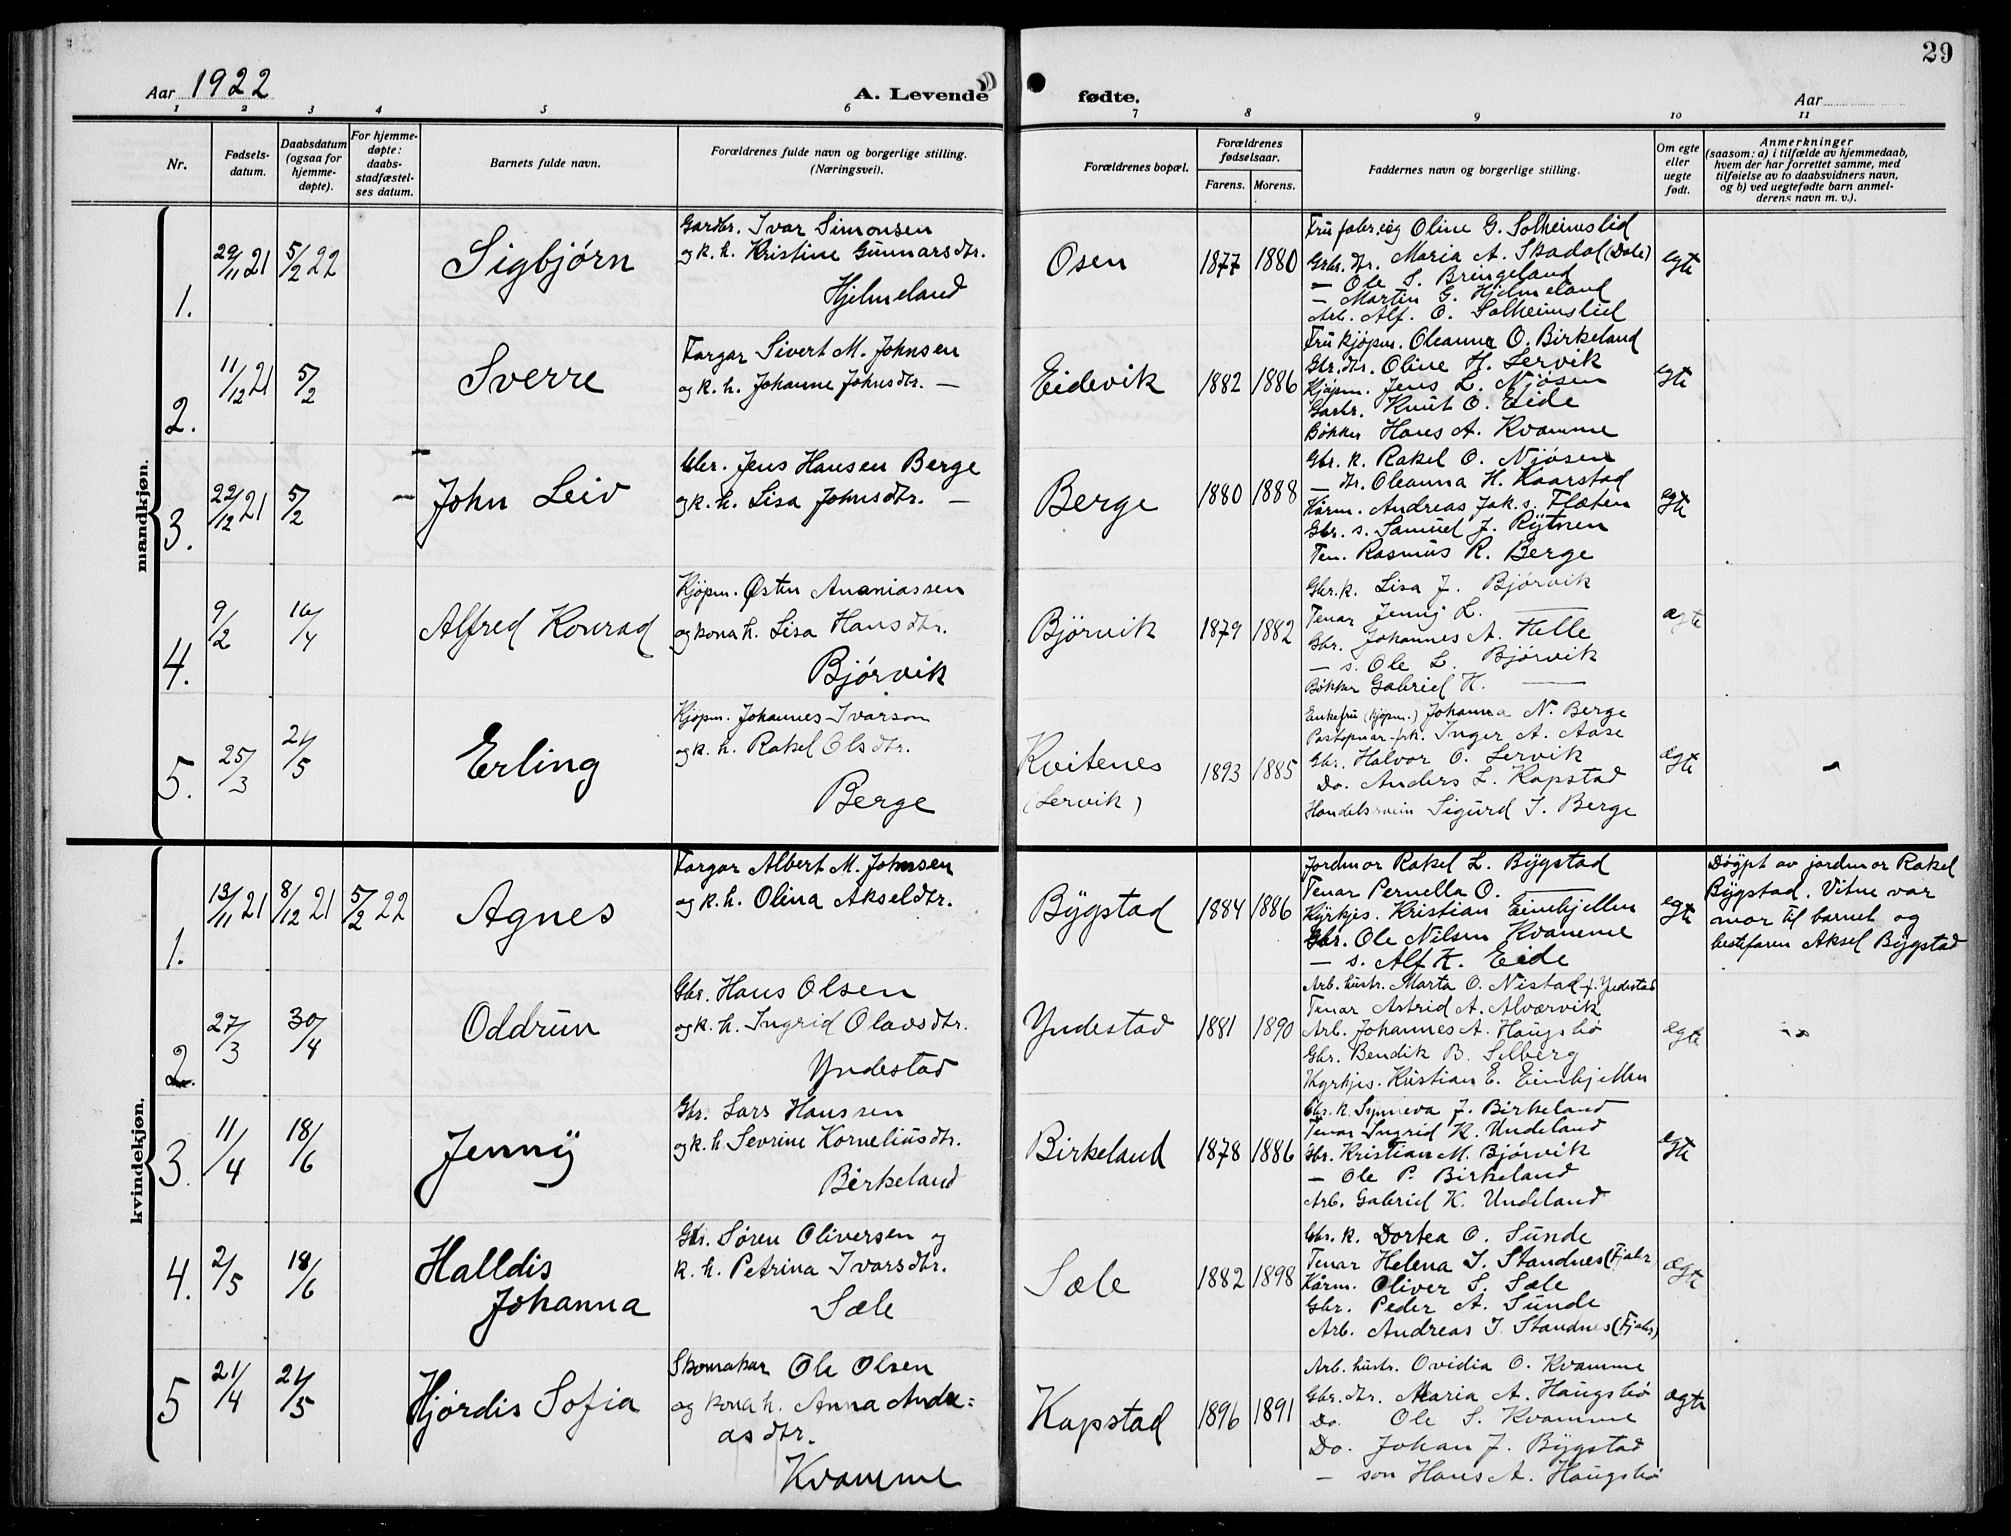 29
Aar 1922
A. Levende fødte.
Aar
1 2 3 4 5 6 7 8 9 10 11
Nr.
Fødsels-
datum.
Daabsdatum
(ogsaa for
hjemme-
døpte).
For hjemme-
døpte:
daabs-
stadfæstel-
ses datum.
Barnets fulde navn.
Forældrenes fulde navn og borgerlige stilling.
(Næringsvei).
Forældrenes bopæl.
Forældrenes
fødselsaar.
Farens. Morens.
Faddernes navn og borgerlige stilling.
Om egte
eller
uegte
født.
Anmerkninger
(saasom: a) i tilfælde av hjemmedaab,
hvem der har forrettet samme, med
tilføielse av to daabsvidners navn,
og b) ved uegtefødte barn anmel-
derens navn m. v.).
mandkjøn.
1. 29/11 21 5/2 22 Sigbjørn
Gardbr. Ivar Simonsen
og k. h. Kristine Gunnarsdtr.
Hjelmeland
Osen 1877 1880
Oline G. Solheimslid
Gbr. dtr. Maria A. Skadal (Dale)
— Ole S. Bringeland
— Martin G. Hjelmeland
Arb. Alf. O. Solheimslid
egte
2. 11/12 21 5/2 Sverre
Fargar Sivert M. Johnsen
og k. h. Johanne Johnsdtr. —
Eidevik 1882 1886
Fru kjøpm. Oleanna O. Birkeland
Gbr. dtr. Oline H. Lervik
Kjøpm. Jens L. Njøsen
Garbr. Knut O. Eide
Bøkker Hans A. Kvamme
egte
3. 22/12 21 5/2 — John Leiv
Gbr. Jens Hansen Berge
og k. h. Lisa Johnsdtr. —
Berge 1880 1888
Gbr. k. Rakel O. Njøsen
— dtr. Oleanna H. Kaarstad
Kårm. Andreas Jak.s. Flæten
Gbr. s. Samuel J. Rytnen
Ten. Rasmus R. Berge
egte
4. 9/2 16/4 Alfred Konrad
Kjøpm. Østen Ananiassen
og kona h. Lisa Hansdtr.
Bjørvik
Bjørvik 1879 1882
Gbr. k. Lisa J. Bjørvik
Tenar Jenny L. —
Gbr. Johannes A. Helle
— s. Ole L. Bjørvik
Bøkker Gabriel H. —
ægte
5. 25/3 21/5 Erling
Kjøpm. Johannes Ivarson
og k. h. Rakel Olsdtr.
Berge
Kvitenes
(Lervik)
1893 1885
Enkefru (kjøpm.) Johanna N. Berge
Postopnar frk. Inger A. Aase
Gbr. Halvor O. Lervik
Do. Anders L. Kapstad
Handelssvein Sigurd J. Berge
ægte —
kvindekjøn.
1. 13/11 21 8/12 21 5/2 22 Agnes
Fargar Albert M. Johnsen
og k. h. Olina Akseldtr.
Bygstad 1884 1886
Jordmor Rakel L. Bygstad
Tenar Pernella O. —
Kyrkjes. Kristian Eimhjellen
Gbr. Ole Nilsen Kvamme
— s. Alf K. Eide
egte
Døypt av jordmor Rakel
Bygstad. Vitne var
mor til barnet og
bestefaren Aksel Bygstad
2. 27/3 30/4 Oddrun
Gbr. Hans Olsen
og k. h. Ingrid Olavsdtr.
Yndestad
Yndestad 1881 1890
Arb. hustr. Marta O. Nistad f. Yndestad
Tenar Astrid A. Alværvik
Arb. Johannes A. Haugsbø
Gbr. Bendik B. Selberg
Kyrkjes. Kristian E. Eimhjellen
egte
3. 11/4 18/6 Jenny
Gbr. Lars Hanssen
og k. h. Sevrine Korneliusdtr.
Birkeland
Birkeland 1878 1886
Gbr. k. Synneva J. Birkeland
Tenar Ingrid K. Undeland
Gbr. Kristian M. Bjørvik
— Ole P. Birkeland
Arb. Gabriel K. Undeland
egte
4. 2/5 18/6 Halldis
Johanna
Gbr. Søren Oliversen og
k. h. Petrina Ivarsdtr.
Sæle
Sæle 1882 1898
Gbr. k. Dortea O. Sunde
Tenar Helena I. Standnes (Fjaler)
Kårm. Oliver S. Sæle
Gbr. Peder A. Sunde
Arb. Andreas I. Standnes (Fjaler)
ægte
5 21/4 21/5 Hjørdis Sofia
Skomakar Ole Olsen
og kona h. Anna Andre=
asdtr.
Kvamme
Kapstad 1896 1891
Arb. hustr. Ovidia O. Kvamme
Gbr. dtr. Maria A. Haugsbø
Do. Ole S. Kvamme
Do. Johan J. Bygstad
— son Hans A. Haugsbø
ægte